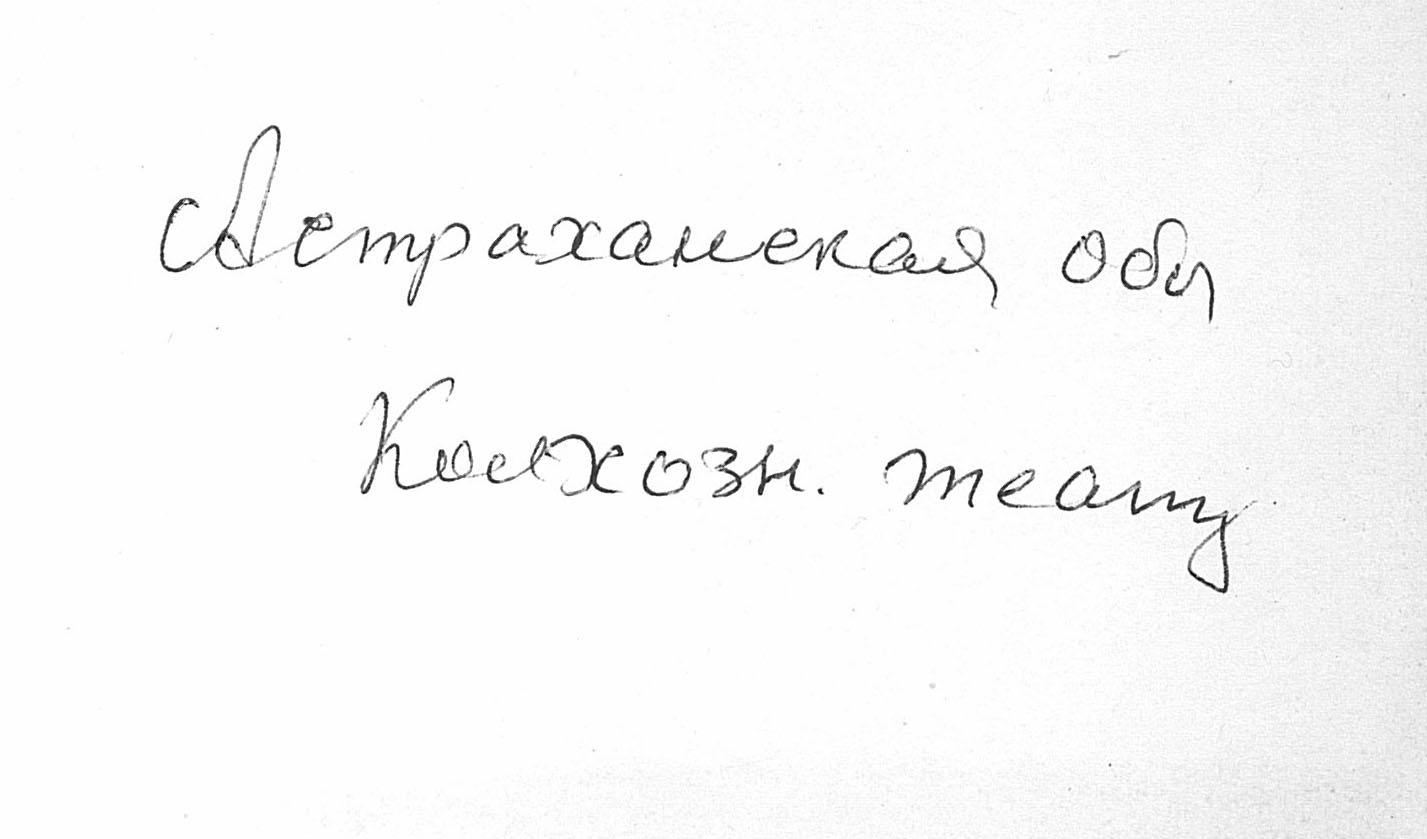 Астраханская обл
Колхозн. театр